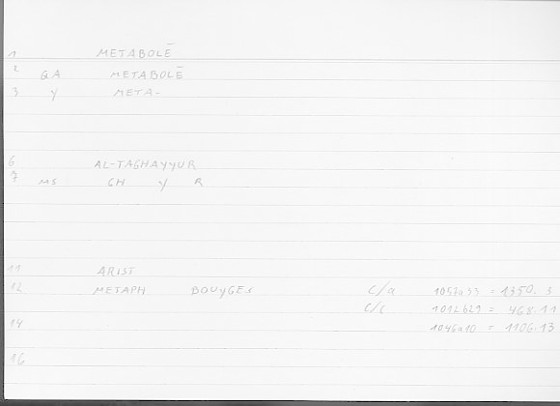 1 METABOLĒ
2 QA METABOLĒ
3 Y META-
6 AL-TAGHAYYUR
7 MS GH Y R
11 ARIST
12 METAPH BOUYGES C/a 1057a33 = 1350.3
C/c 1012b29 = 468.11
14 1046a10 = 1106.13
16